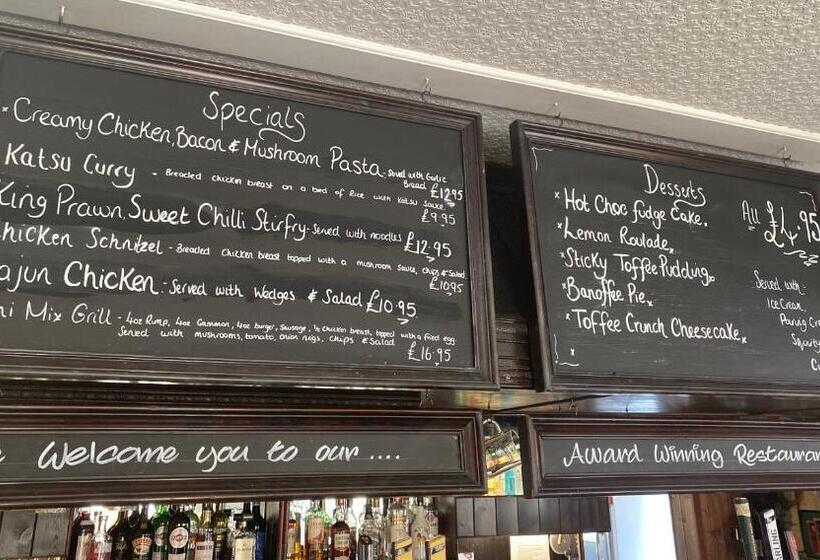 Specials
Creamy Chicken, Bacon & Mushroom Pasta - served with Garlic
Bread £12.95
Katsu Curry - Breaded chicken breast on a bed of Rice with Katsu Sauce
£9.95
King Prawn, Sweet Chilli Stirfry - served with noodles £12.95
hicken Schnitzel - Breaded chicken breast topped with a mushroom sauce, chips & Salad
£10.95
ajun Chicken - Served with Wedges & Salad £10.95
ni Mix Grill - 4oz Rump, 4oz Gammon, 4oz burger, Sausage, ½ chicken breast, topped with a fried egg
Served with mushrooms, tomato, onion rings, chips & Salad
£16.95
Desserts
All £4.95
Hot Choc fudge Cake
Lemon Roulade
Sticky Toffee Pudding
Banoffee Pie
Toffee Crunch Cheesecake
Served with:
Ice Cream
Pouring Cr
Squirty
Welcome you to our ....
Award Winning Restauran